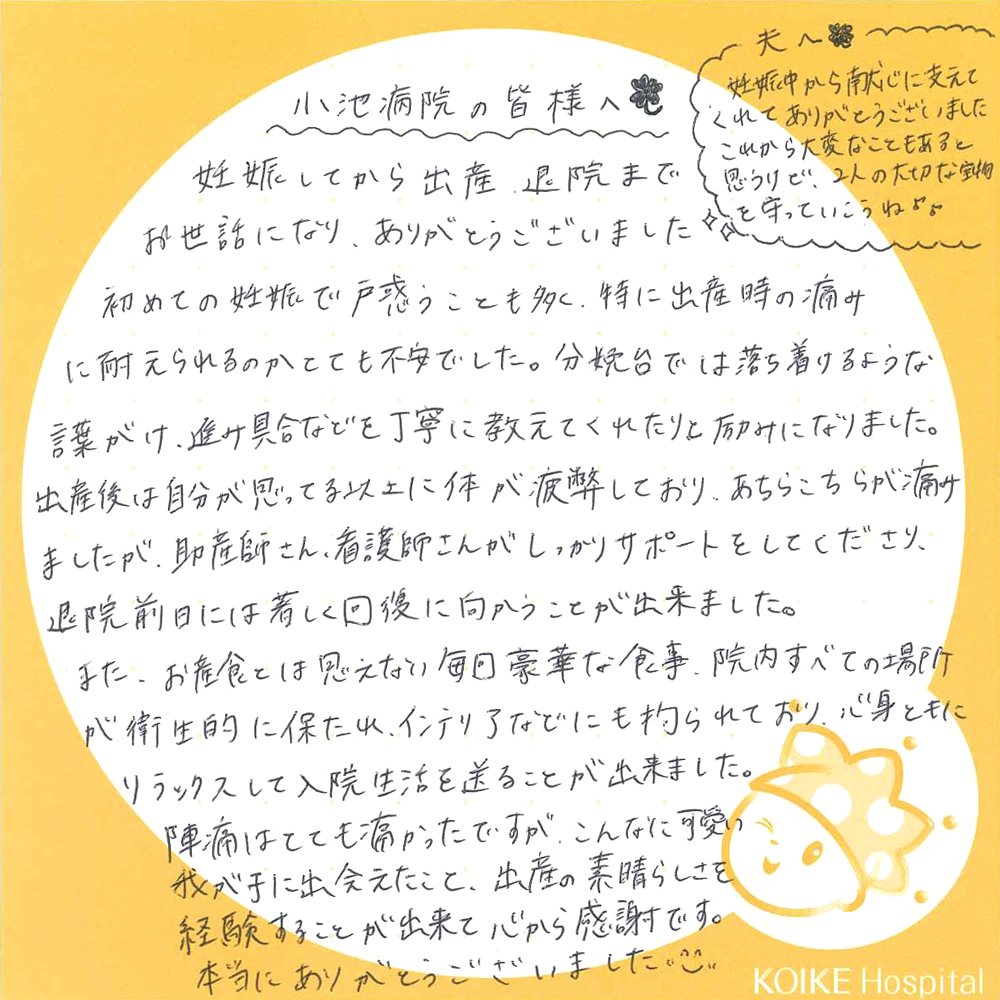 小池病院の皆様へ
妊娠してから出産、退院まで
お世話になり、ありがとうございました
初めての妊娠で戸惑うことも多く、特に出産時の痛み
に耐えられるのかとても不安でした。分娩台では落ち着けるような
言葉がけ、進み具合などを丁寧に教えてくれたりと励みになりました。
出産後は自分が思ってる以上に体が疲弊しており、あちらこちらが痛み
ましたが、助産師さん、看護師さんがしっかりサポートをしてくださり、
退院前日には著しく回復に向かうことが出来ました。
また、お産食とは思えない毎回豪華な食事、院内すべての場所
が衛生的に保たれ、インテリアなどにも拘られており、心身ともに
リラックスして入院生活を送ることが出来ました。
陣痛はとても痛かったですが、こんなに可愛い
我が子に出会えたこと、出産の素晴らしさを
経験することが出来て心から感謝です。
本当にありがとうございました
夫へ
妊娠中から献身に支えて
くれてありがとうございました
これから大変なこともあると
思うけど、2人の大切な宝物
を守っていこうね
KOIKE Hospital